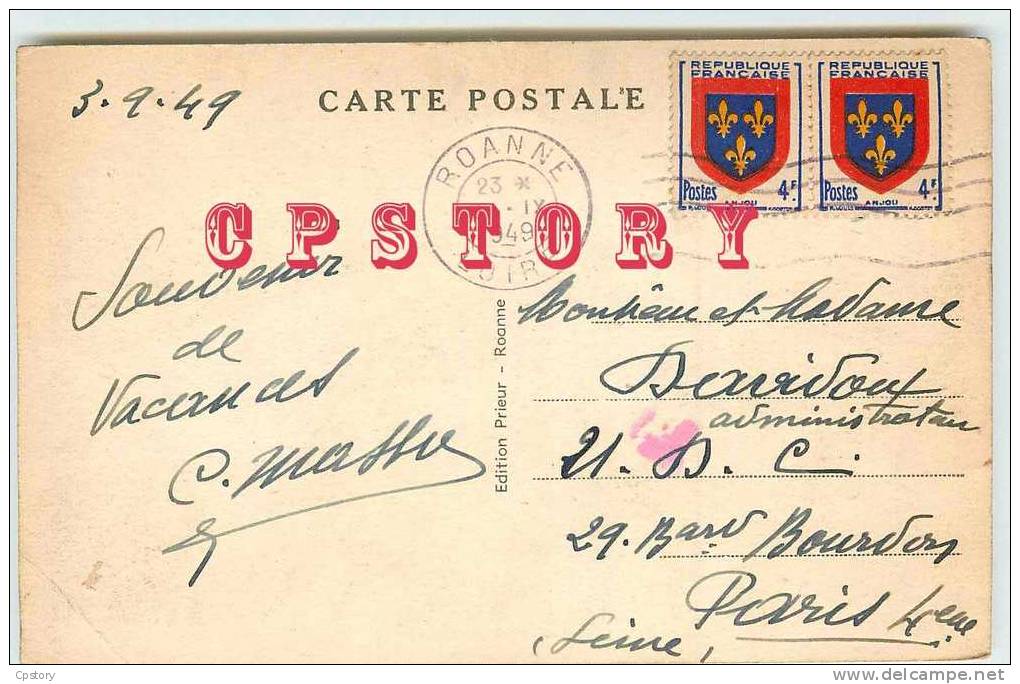 3-9-49
CARTE POSTALE
REPUBLIQUE
FRANÇAISE
Postes 4F
ANJOU
REPUBLIQUE
FRANÇAISE
Postes 4F
ANJOU
ROANNE
23 *
IX
1949
LOIRE
CPSTORY
Souvenir
de
Vacances
Edition Prieur - Roanne
Monsieur et Madame
administrateur
21. D. C.
29. Bard Bourdon
Paris 4eme
(Seine)
Cpstory
delcampe.net